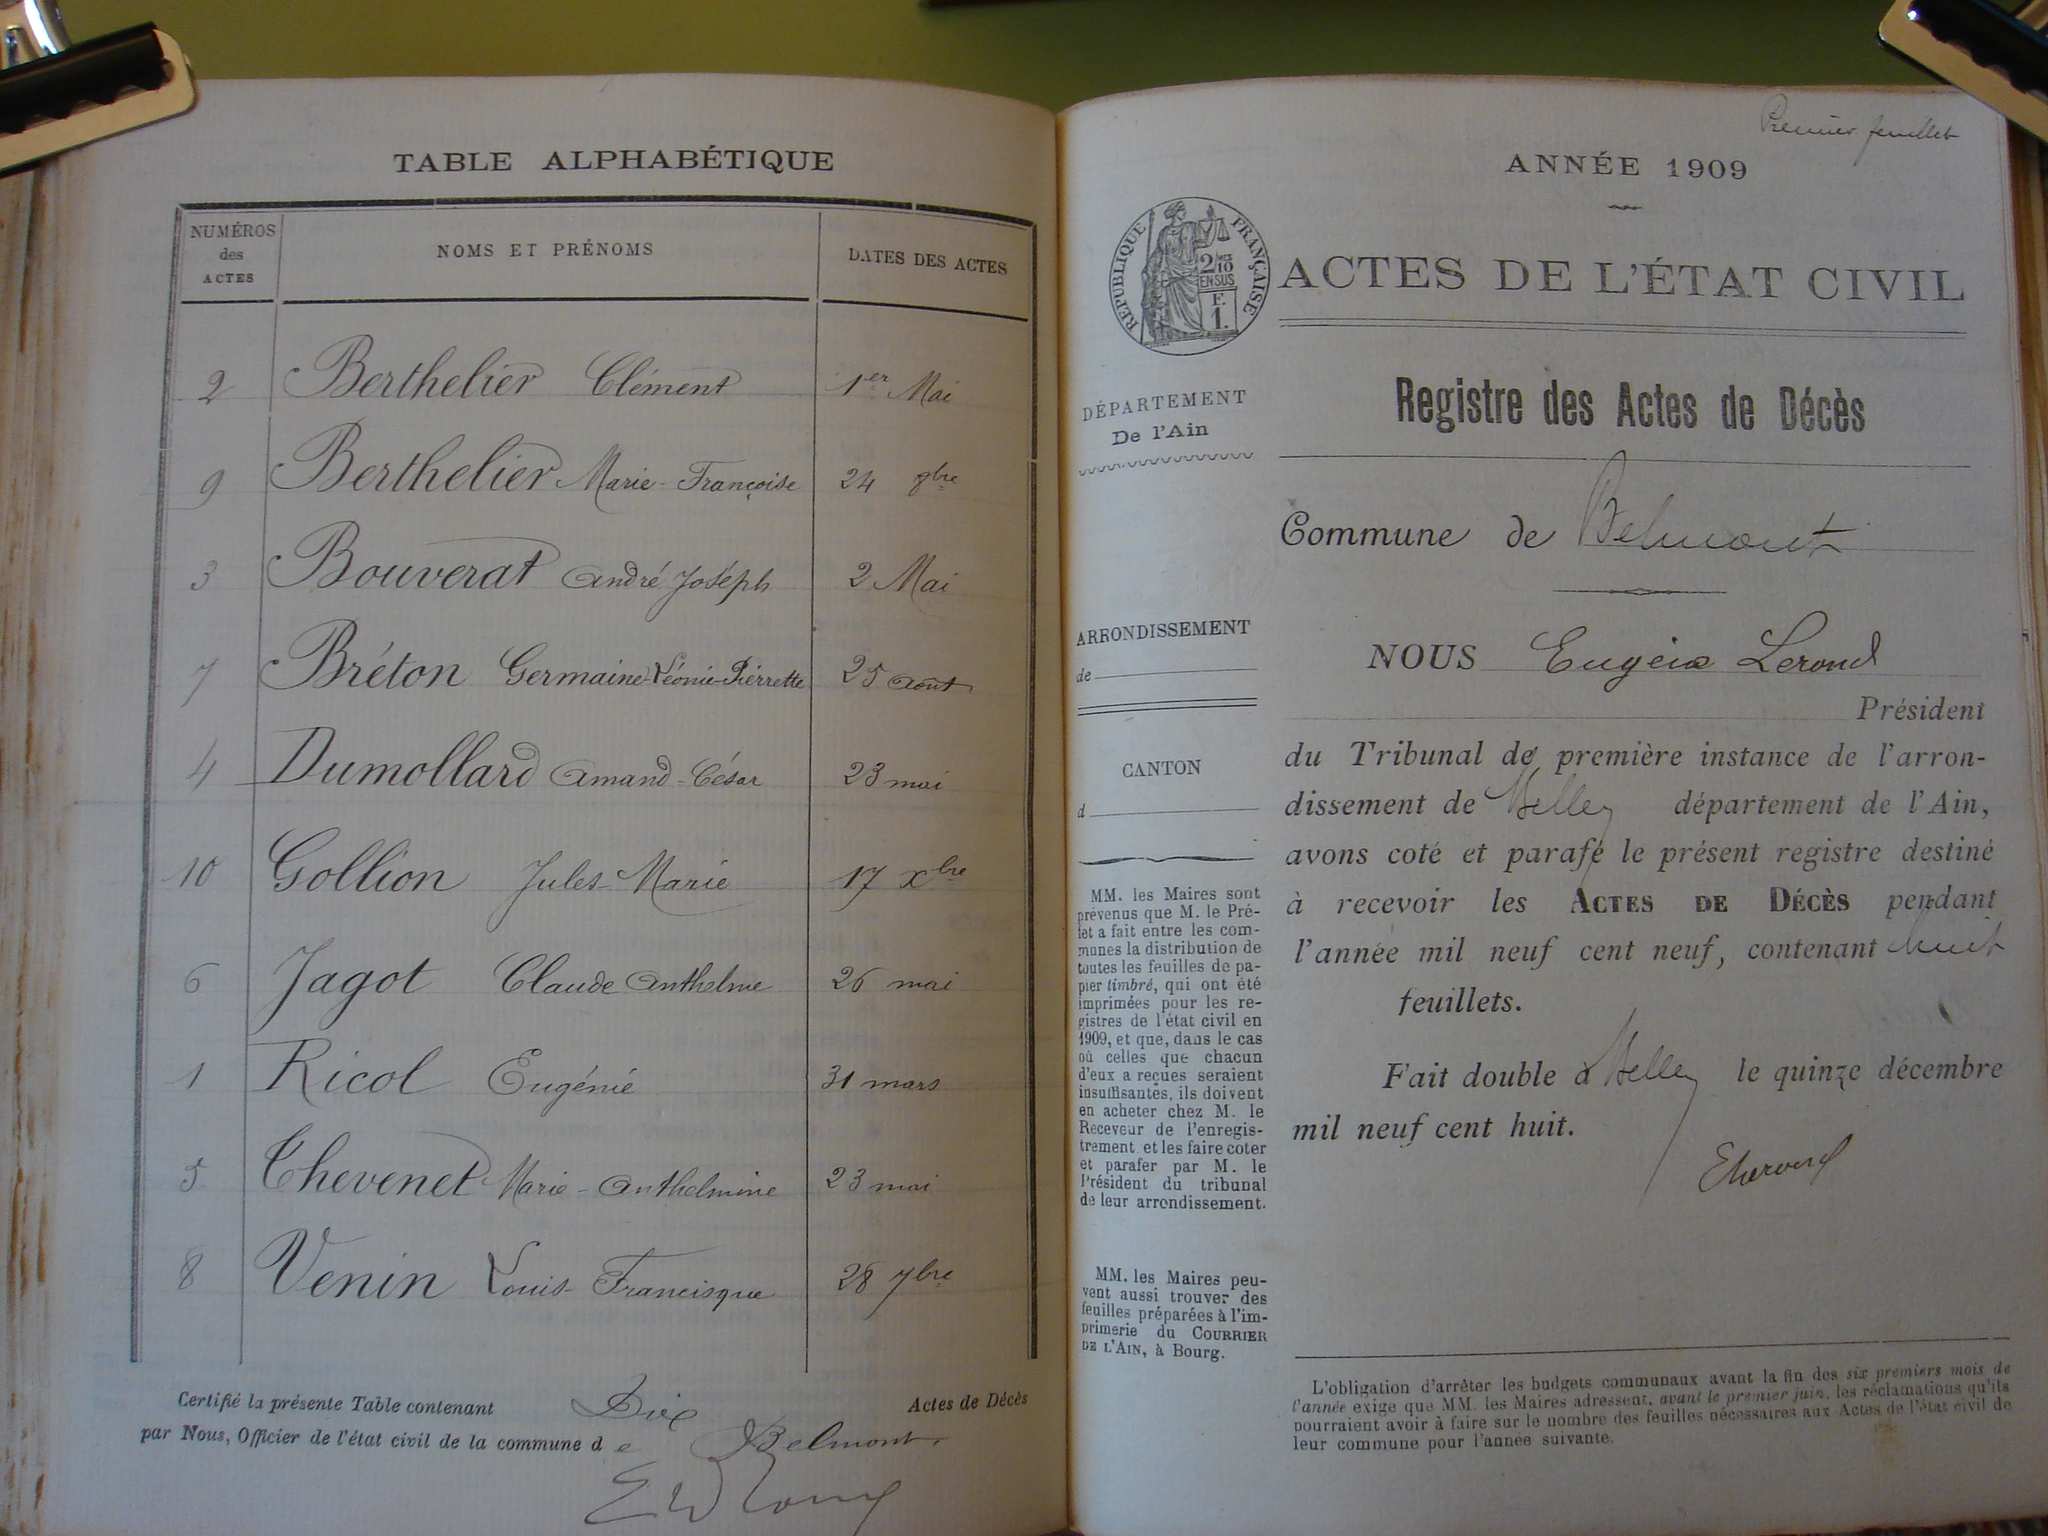 TABLE ALPHABÉTIQUE
NUMÉROS des ACTES NOMS ET PRÉNOMS DATES DES ACTES
2 Berthelier Clément 1er Mai
9 Berthelier Marie-Françoise 24 9bre
3 Bouverat André Joséph 2 Mai
7 Bréton Germaine-Léonie-Pierrette 25 Août
4 Dumollard Amand-César 23 mai
10 Gollion Jules-Marie 17 Xbre
6 Jagot Claude Anthelme 26 mai
1 Ricol Eugénie 31 mars
5 Thevenet Marie-Anthelmine 23 mai
8 Venin Louis-Francisque 28 7bre
Certifié la présente Table contenant Dix Actes de Décès
par Nous, Officier de l'état civil de la commune de Belmont
Premier feuillet
ANNÉE 1909
RÉPUBLIQUE FRANÇAISE
2/10 EN SUS
F. 1.
ACTES DE L'ÉTAT CIVIL
DÉPARTEMENT
De l'Ain
Registre des Actes de Décès
Commune de Belmont
ARRONDISSEMENT
de
CANTON
d
NOUS Eugène Lerond
Président
du Tribunal de première instance de l'arron-
dissement de Belley département de l'Ain,
avons coté et parafé le présent registre destiné
à recevoir les ACTES DE DÉCÈS pendant
l'année mil neuf cent neuf, contenant huit
feuillets.
Fait double à Belley le quinze décembre
mil neuf cent huit.
MM. les Maires sont
prévenus que M. le Pré-
fet a fait entre les com-
munes la distribution de
toutes les feuilles de pa-
pier timbré, qui ont été
imprimées pour les re-
gistres de l'état civil en
1909, et que, dans le cas
où celles que chacun
d'eux a reçues seraient
insuffisantes, ils doivent
en acheter chez M. le
Receveur de l'enregis-
trement et les faire coter
et parafer par M. le
Président du tribunal
de leur arrondissement.
MM. les Maires peu-
vent aussi trouver des
feuilles préparées à l'im-
primerie du COURRIER
DE L'AIN, à Bourg.
L'obligation d'arrêter les budgets communaux avant la fin des six premiers mois de
l'année exige que MM. les Maires adressent, avant le premier juin, les réclamations qu'ils
pourraient avoir à faire sur le nombre des feuilles nécessaires aux Actes de l'état civil de
leur commune pour l'année suivante.